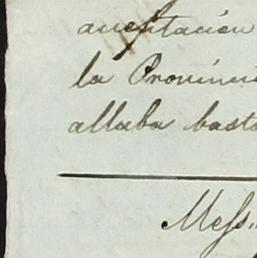 aceptación
la Provinci
allaba basta
Mess.